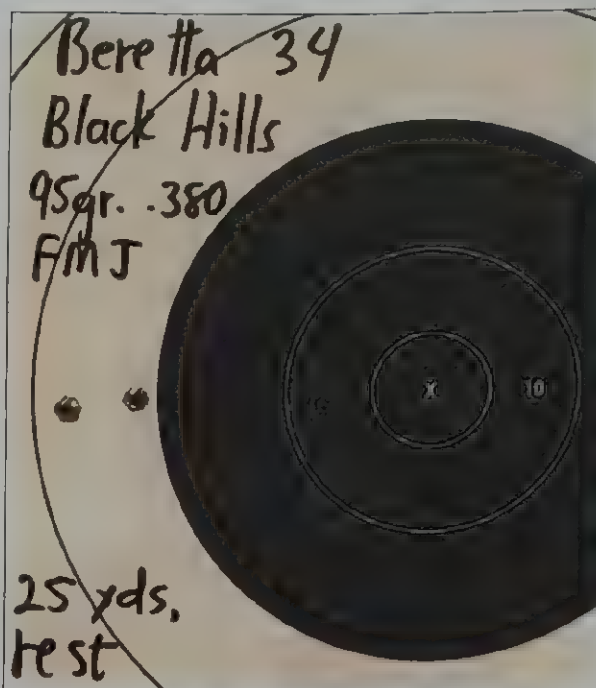 Beretta 34
Black Hills
95gr. .380
FMJ
X 10
25 yds,
rest